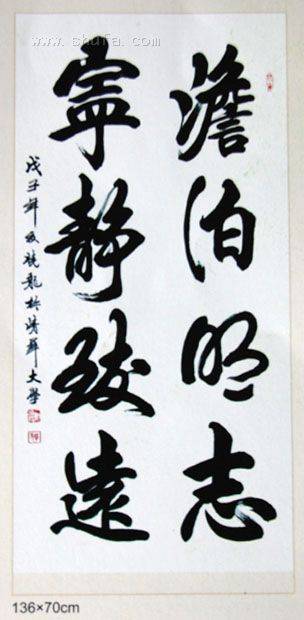 www.shufa.com
澹泊明志
寧靜致遠
戊子年夏龍於清華大學
136×70cm